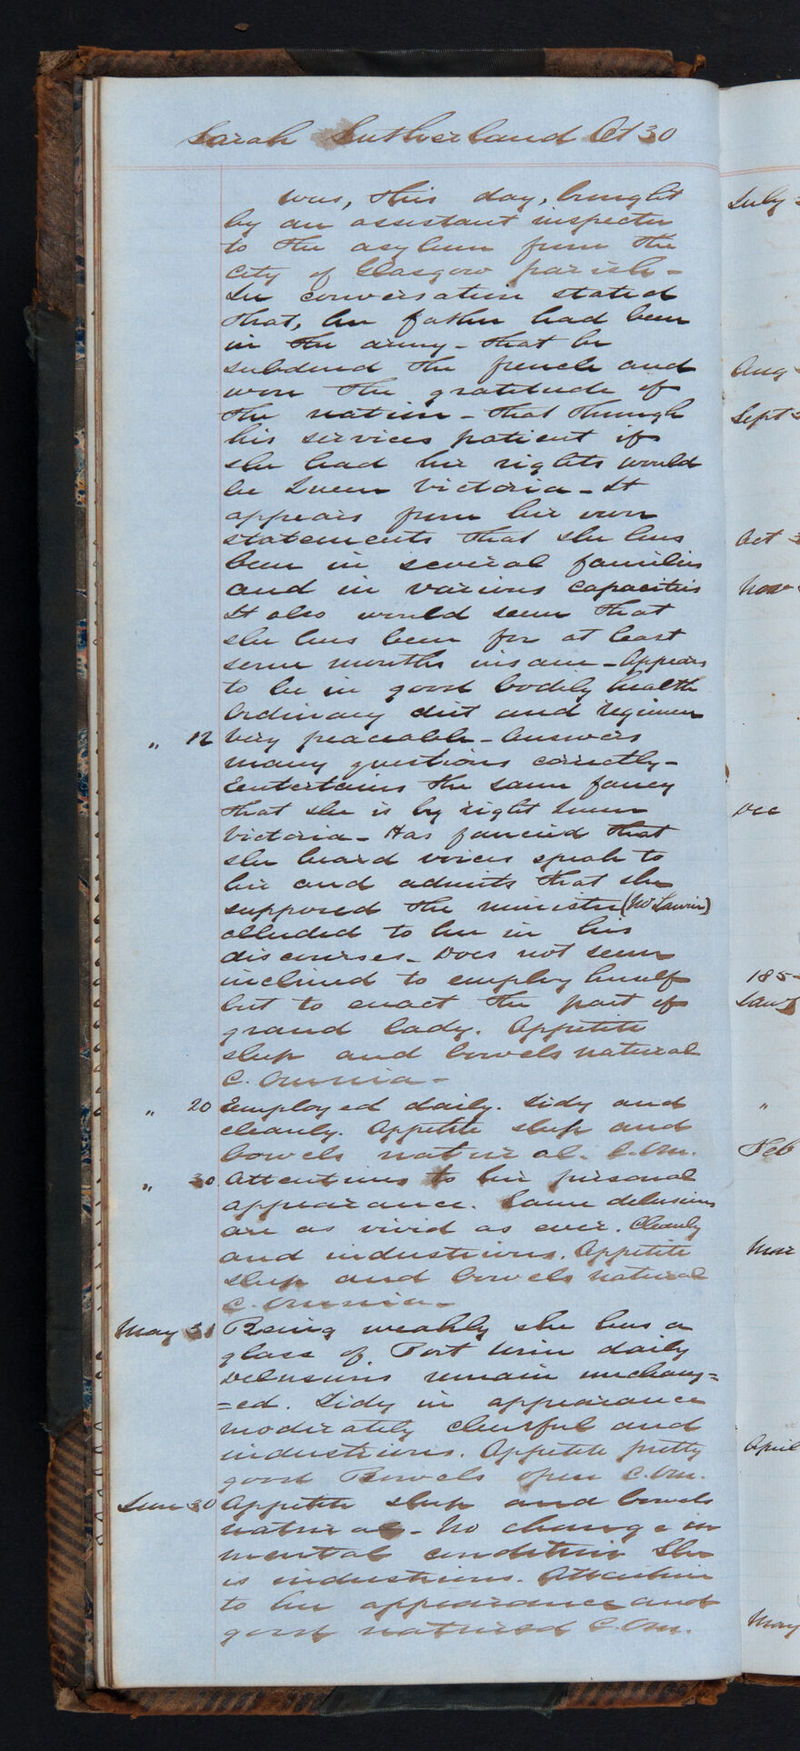 Sarah Sutherland Æt 30
was, this day, brought
by an assistant inspector
to the asylum from the
City of Glasgow parish -
In conversation stated
that, her father had been
in the army - that he
subdued the french and
won the gratitude of
the nation - that through
his services patient if
she had her rights would
be Queen Victoria - It
appears from her own
statements that she has
been in several families
and in various capacities
It also would seem that
she has been for at least
some months insane - Appears
to be in good bodily health
Ordinary diet and regimen
" 12 Very peaceable - Answers
many questions correctly -
Entertains the same fancy
that she is by right Queen
Victoria - Has fancied that
she heard voices speak to
her and admits that she
supposed the minister (Mr )
alluded to her in his
discourses - Does not seem
inclined to employ herself
but to enact the part of
grand lady. Appetite
sleep and bowels natural
C. Omnia -
" 20 Employed daily. Tidy and
cleanly. Appetite sleep and
bowels natural. C. Om.
" 30 Attentions to her personal
appearance. Same delusions
are as vivid as ever. Cleanly
and industrious. Appetite
sleep and bowels natural
C. Omnia -
May 31 Being weakly she has a
glass of Port Wine daily
Delusions remain unchang=
=ed. Tidy in appearance
moderately cheerful and
industrious. Appetite pretty
good Bowels open C. Om.
June 30 Appetite sleep and bowels
natural - No change in
mental condition She
is industrious. Attentive
to her appearance and
good natured C. Om.
July
Aug
Sept
Oct
Nov
Dec
185
Jany
"
Feb
Mar
April
May